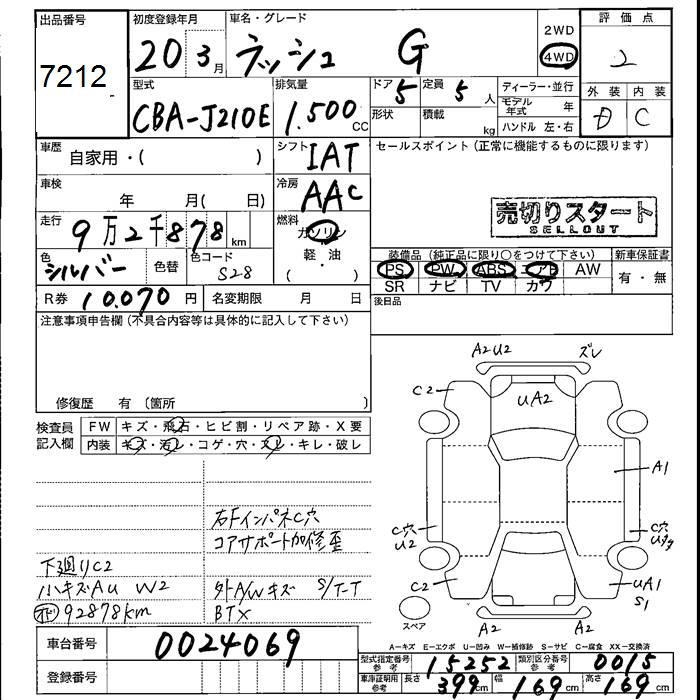 出品番号 初度登録年月 車名・グレード 評価点
7212 20 3月 ラッシュ G 2WD 4WD 2
型式 排気量 ドア 5 定員 5人 ディーラー・並行 外装 内装
CBA-J210E 1.500CC 形状 積載 kg モデル年式 年 C
ハンドル 左・右
車歴 自家用・( ) シフト IAT セールスポイント(正常に機能するものに限ります)
車検 年 月( 日) 冷房 AAC
売切りスタート
SELLOUT
走行 9万2千878km 燃料 ガソリン・軽・油
色 シルバー 色替 色コード S28
装備品(純正品に限り○をつけて下さい) 新車保証書
PS PW ABS エアB AW 有・無
SR ナビ TV カワ
R券 10.070円 名変期限 月 日 後日品
注意事項申告欄(不具合内容等は具体的に記入して下さい)
修復歴 有(箇所
検査員記入欄 FW キズ・飛石・ヒビ割・リペア跡・X要
内装 キズ・汚レ・コゲ・穴・スレ・キレ・破レ
A2U2 ズレ
C2 UA2
A1
C穴 U2 C穴
C2 UA1 S1
A2 A2
スペア
右Fインパネ穴
コアサポート加修歪
下廻りC2
小キズAU W2 外A/Wキズ S/T-T
92878km BTX
A-キズ E-エクボ U-凹み W-補修跡 S-サビ C-腐食 XX-交換済
車台番号 0024069
型式指定番号参考 15252 類別区分番号参考 0015
登録番号
車庫証明用参考 長さ 399cm 幅 169cm 高さ 169cm